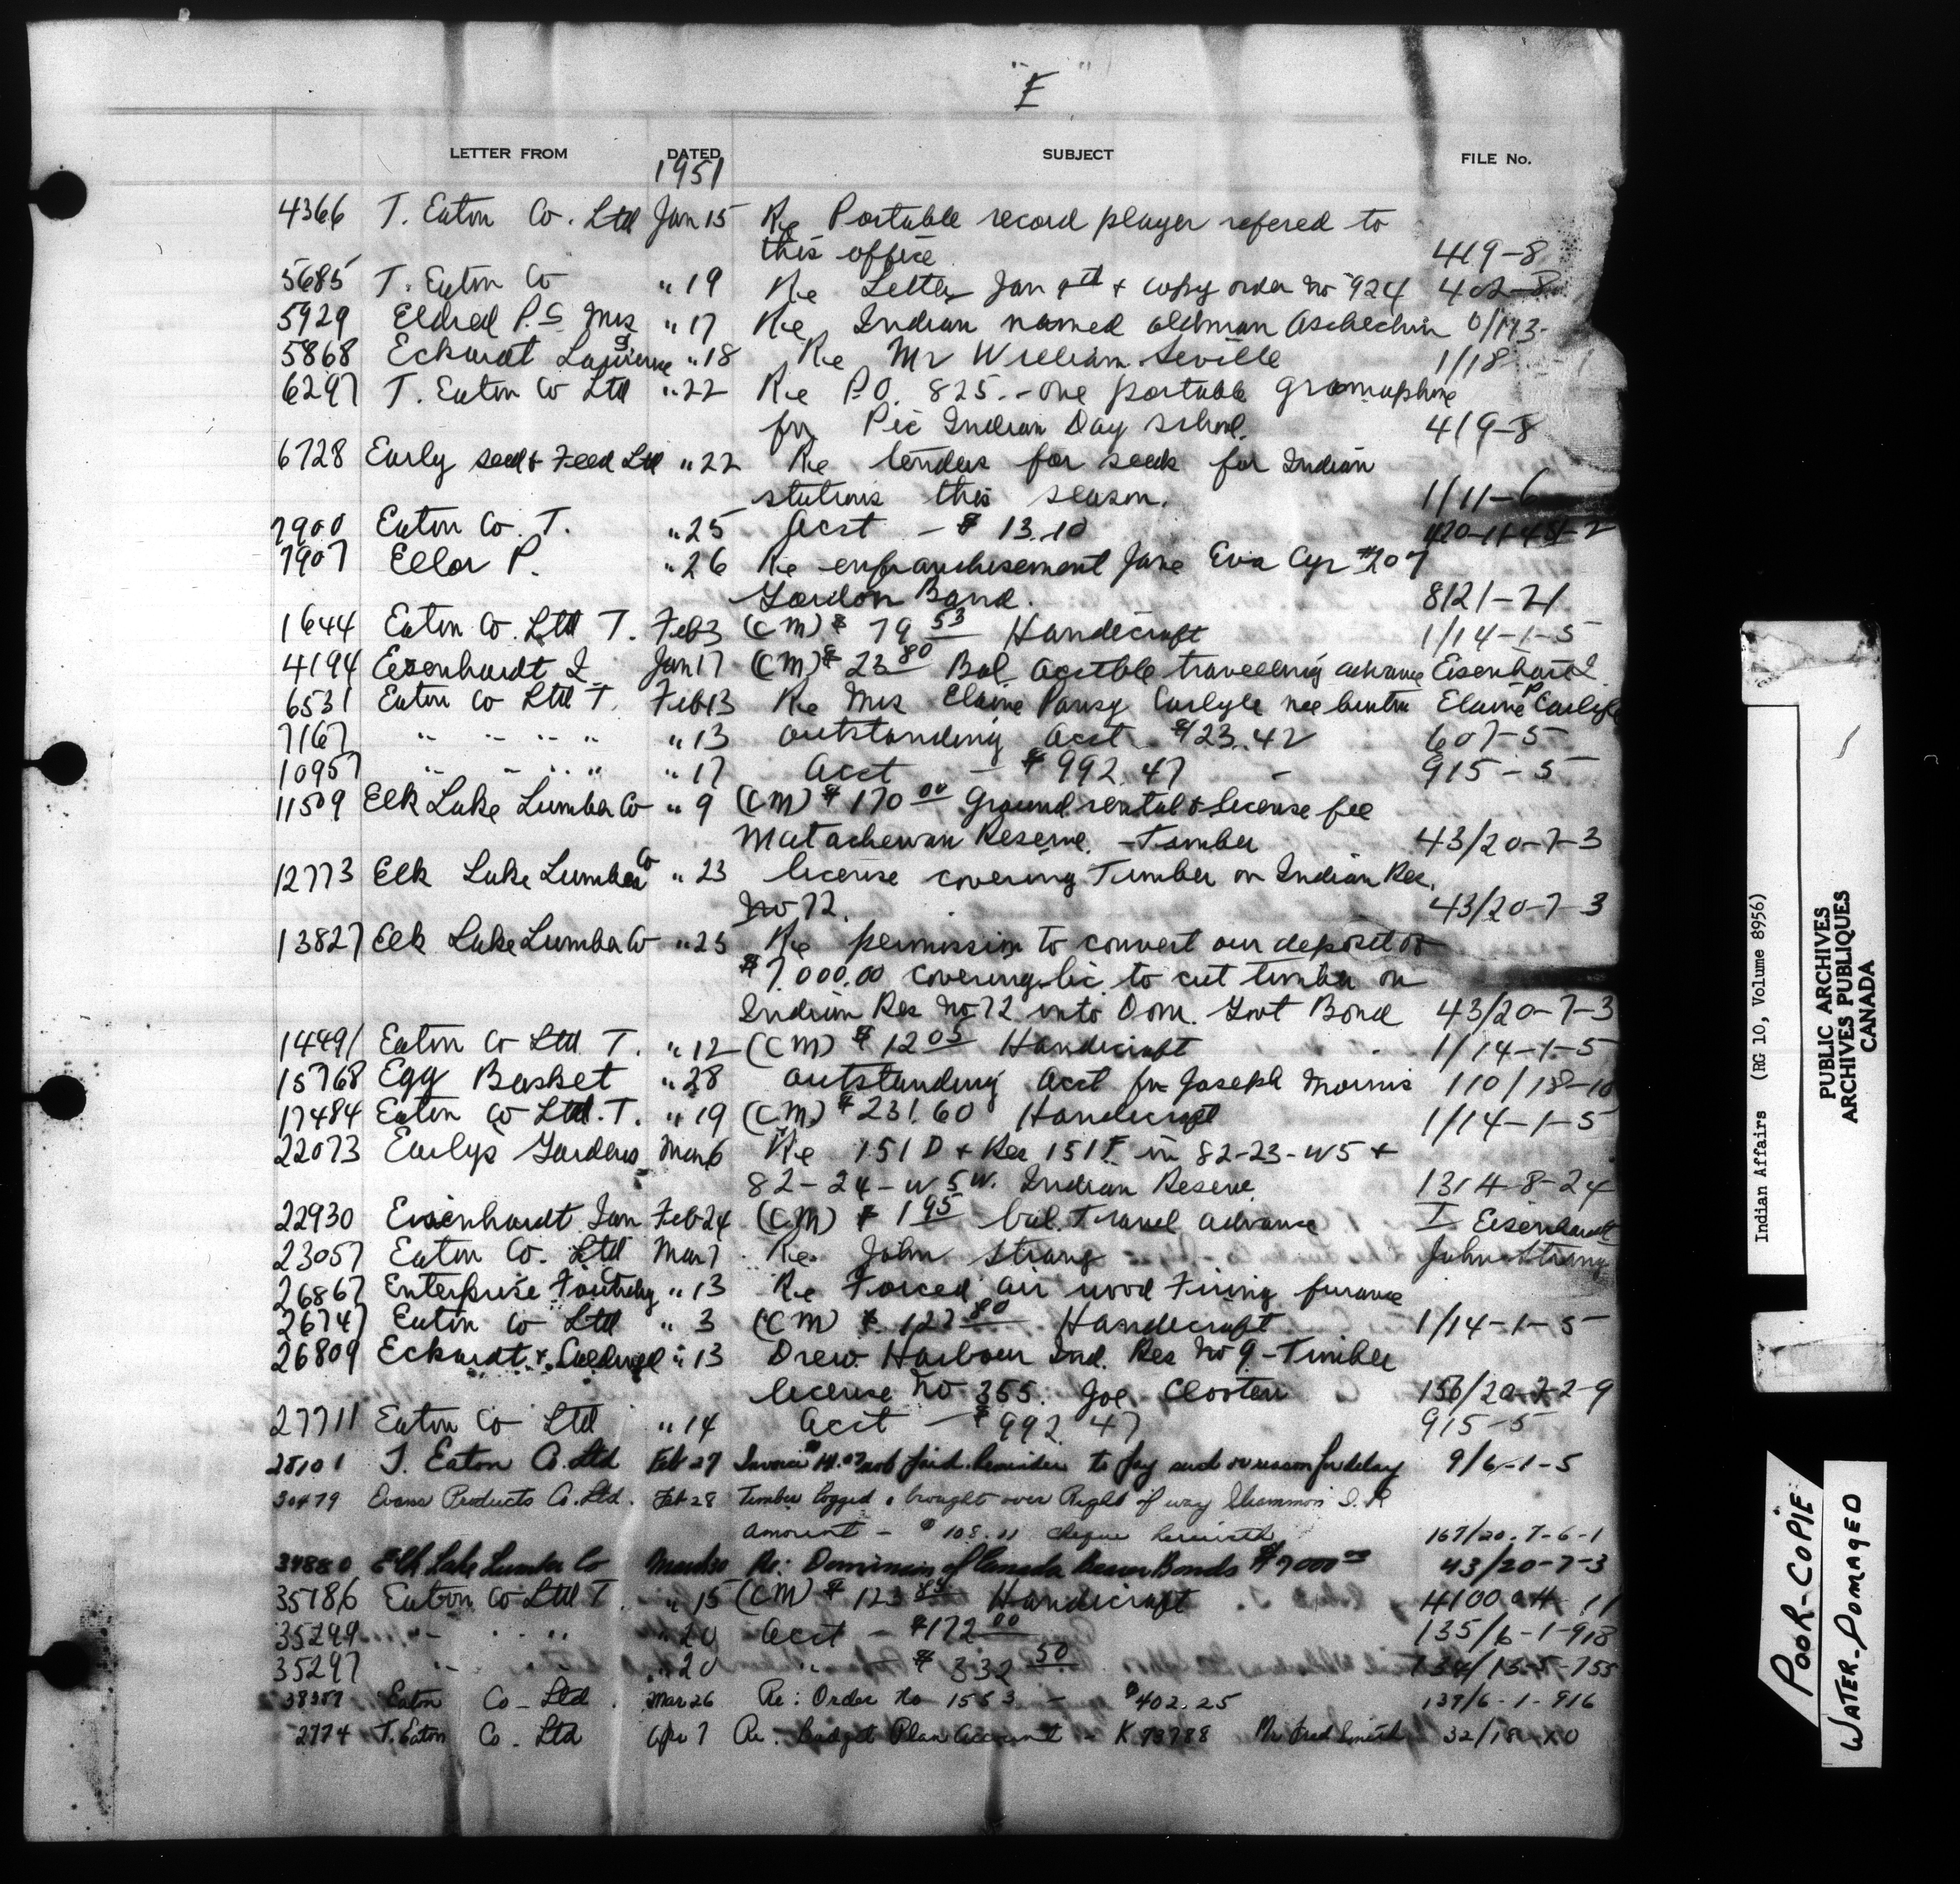 "E"
LETTER FROM DATED SUBJECT FILE No.
1951
4366 T. Eaton Co. Ltd Jan 15 Re Portable record player refered to
this office 419-8
5685 T. Eaton Co " 19 Re Letter Jan & copy order no 924 402-8
5929 Eldred P.S. Mrs " 17 Re Indian named oldman
5868 Eckardt " 18 Re Mr William Seville 1/18
6297 T. Eaton Co Ltd " 22 Re P.O. 825 - one portable gramophone
for Pic Indian Day School. 419-8
6728 Early seed & Feed Ltd " 22 Re tenders for seeds for Indian
stations this season. 1/11-6
7900 Eaton Co. T. " 25 Acct - $ 13.10
7907 Ellor P. " 26 Re enfranchisement Jane Eva Cyr #207
Gordon Band. 8121-71
1644 Eaton Co. Ltd T. Feb 3 (CM) $ 79 53 Handicraft 1/14-1-5
4194 Eisenhardt I Jan 17 (CM) $ 23 80 Bal. Acctble travelling advance Eisenhardt I.
6531 Eaton Co Ltd T. Feb 13 Re Mrs Elaine Pansy Carlyle nee Elaine P Carlyle
7167 " " " " " 13 outstanding acct $123.42 607-5
10957 " " " " " 17 Acct - $ 992.47 - 915-5
11509 Elk Lake Lumber Co " 9 (CM) $ 170 00 Ground rental & license fee
Matachewan Reserve. - Timber 43/20-7-3
12773 Elk Lake Lumber Co " 23 license covering Timber on Indian Res.
No 72. 43/20-7-3
13827 Elk Lake Lumber Co " 23 Re permission to convert our deposit of
$7,000.00 covering lic. to cut timber on
Indian Res No. 72 into Dom. Govt Bond 43/20-7-3
14491 Eaton Co Ltd T. " 12 (CM) $ 12 05 Handicraft 1/14-1-5
15768 Egg Basket " 28 outstanding Acct for Joseph Morris 110/18-10
17484 Eaton Co Ltd. T. " 19 (CM) $ 231.60 Handicraft 1/14-1-5
22073 Early's Gardens Mar 6 Re 151 D & Res 151 F in 82-23-W5 &
82-24-W5W. Indian Reserve 1314-8-24
22930 Eisenhardt Ian Feb 24 (CM) $ 1 95 bal. Travel advance I Eisenhardt
23057 Eaton Co. Ltd Mar 7 Re John Strang John Strang
26867 Enterprise Foundry " 13 Re Forced air wood Firing furnace
26747 Eaton Co Ltd " 3 (CM) $ 127 80 Handicraft 1/14-1-5
26809 Eckardt & Caldwell " 13 Drew Harbour Ind. Res No 9 - Timber
license no 355. Joe Clooten 156/20-7-2-9
27711 Eaton Co Ltd " 14 Acct - $ 992.47 915-5
28101 T. Eaton Co. Ltd Feb 27 Invoice not paid. to pay and or reason for delay 9/6-1-5
30479 Evans Products Co. Ltd. Feb 28 Timber logged & brought over Right of way I.R
Amount - $ 108.11 cheque herewith 167/20-7-6-1
34880 Elk Lake Lumber Co Re: Dominion of Canada Bonds $7000 00 43/20-7-3
35786 Eaton Co Ltd T. " 15 (CM) $ 123 84 Handicraft
35299 " " " " 20 Acct - $172 00 135/6-1-918
35297 " " " 20 " - $ 332 50
38307 Eaton Co - Ltd. Mar 26 Re: Order No 1553 - $402.25 139/6-1-916
2774 T. Eaton Co. Ltd Apr 7 Re: Budget Plan Account - K 73788 Mr Fred Smith
Indian Affairs (RG 10, Volume 8956)
PUBLIC ARCHIVES
ARCHIVES PUBLIQUES
CANADA
POOR-COPIE
WATER-DOMAGED